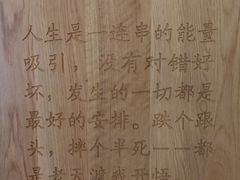 人生是一连串的能量
吸引，没有对错好
坏，发生的一切都是
最好的安排。跌个跟
头，摔个半死——都
是老天渡我开悟